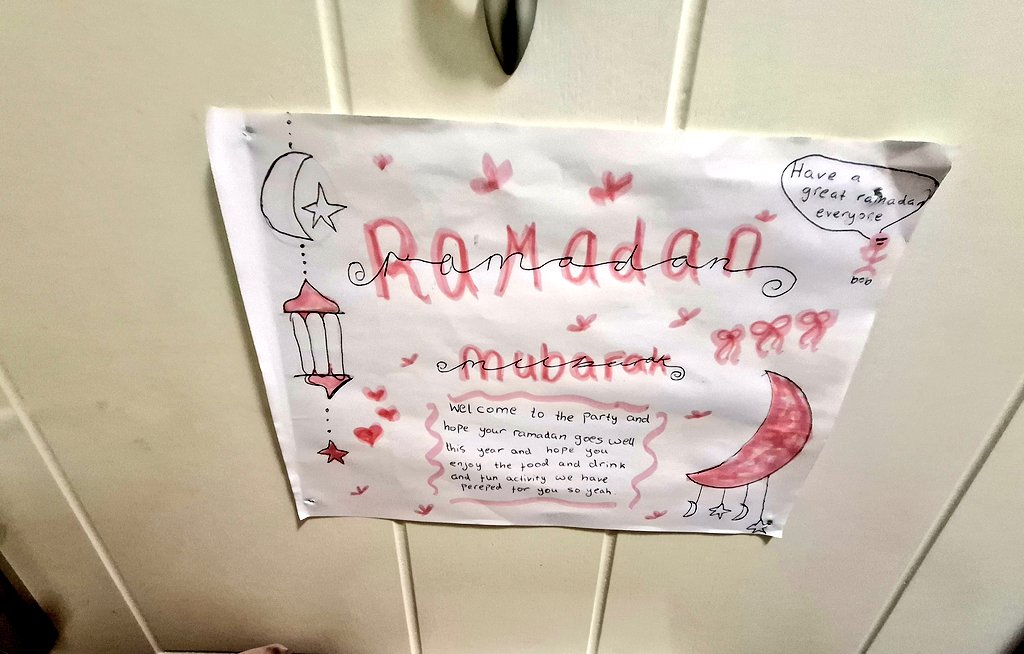 Have a
great ramadan
everyone
bob
Ramadan
ramadan
mubarak
mubarak
Welcome to the party and
hope your ramadan goes well
this year and hope you
enjoy the food and drink
and fun activity we have
pereped for you so yeah